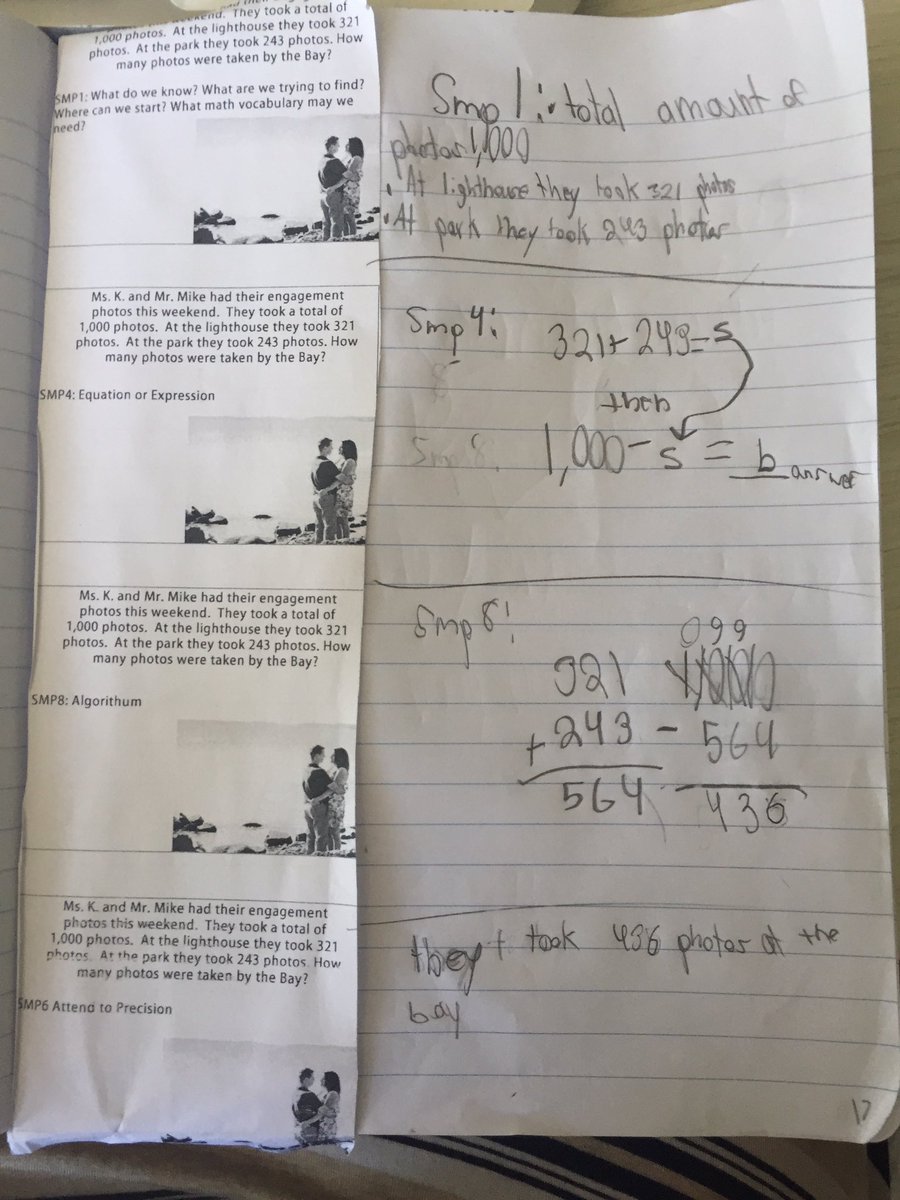 They took a total of
1,000 photos. At the lighthouse they took 321
photos. At the park they took 243 photos. How
many photos were taken by the Bay?
SMP1: What do we know? What are we trying to find?
Where can we start? What math vocabulary may we
need?
Ms. K. and Mr. Mike had their engagement
photos this weekend. They took a total of
1,000 photos. At the lighthouse they took 321
photos. At the park they took 243 photos. How
many photos were taken by the Bay?
SMP4: Equation or Expression
Ms. K. and Mr. Mike had their engagement
photos this weekend. They took a total of
1,000 photos. At the lighthouse they took 321
photos. At the park they took 243 photos. How
many photos were taken by the Bay?
SMP8: Algorithum
Ms. K. and Mr. Mike had their engagement
photos this weekend. They took a total of
1,000 photos. At the lighthouse they took 321
photos. At the park they took 243 photos. How
many photos were taken by the Bay?
SMP6 Attend to Precision
Smp 1: • total amount of
photos 1,000
• At lighthouse they took 321 photos
• At park they took 243 photos
Smp 4:
321 + 243 = s
then
Smp 8:
1,000 - s = b answer
Smp 8:
099
321
+ 243 - 564
564 436
they took 436 photos at the
bay
17